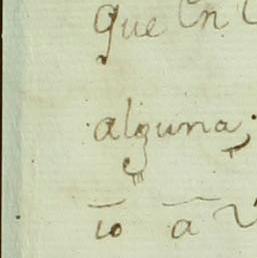 que en
alguna,
io a